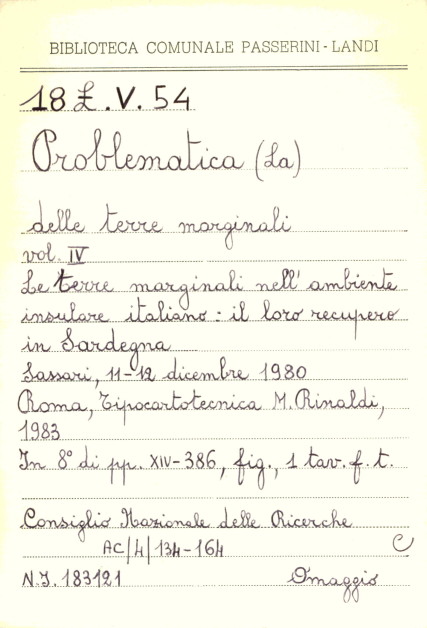 BIBLIOTECA COMUNALE PASSERINI-LANDI
18 £.V. 54
Problematica (La)
delle terre marginali
vol. IV
Le terre marginali nell' ambiente
insulare italiano: il loro recupero
in Sardegna
Sassari, 11-12 dicembre 1980
Roma, Tipocartotecnica M. Rinaldi,
1983
In 8° di pp. XIV-386, fig., 1 tav. f. t.
Consiglio Nazionale delle Ricerche
AC/4/134-164
C
N.I. 183121 Omaggio